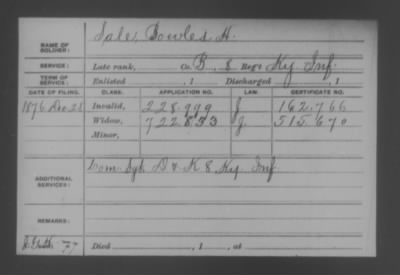 NAME OF SOLDIER: Sale, Bowles H.
SERVICE: Late rank, Co. B, 8 Reg't Ky Inf.
TERM OF SERVICE: Enlisted , 1 Discharged , 1
DATE OF FILING. CLASS. APPLICATION NO. LAW. CERTIFICATE NO.
1876 Dec 28 Invalid, 228.999 J 162.766
Widow, 722.833 J. 515.670
Minor,
ADDITIONAL SERVICES: Com. Sgt. D & K 8 Ky Inf
REMARKS:
77 Died , 1 , at